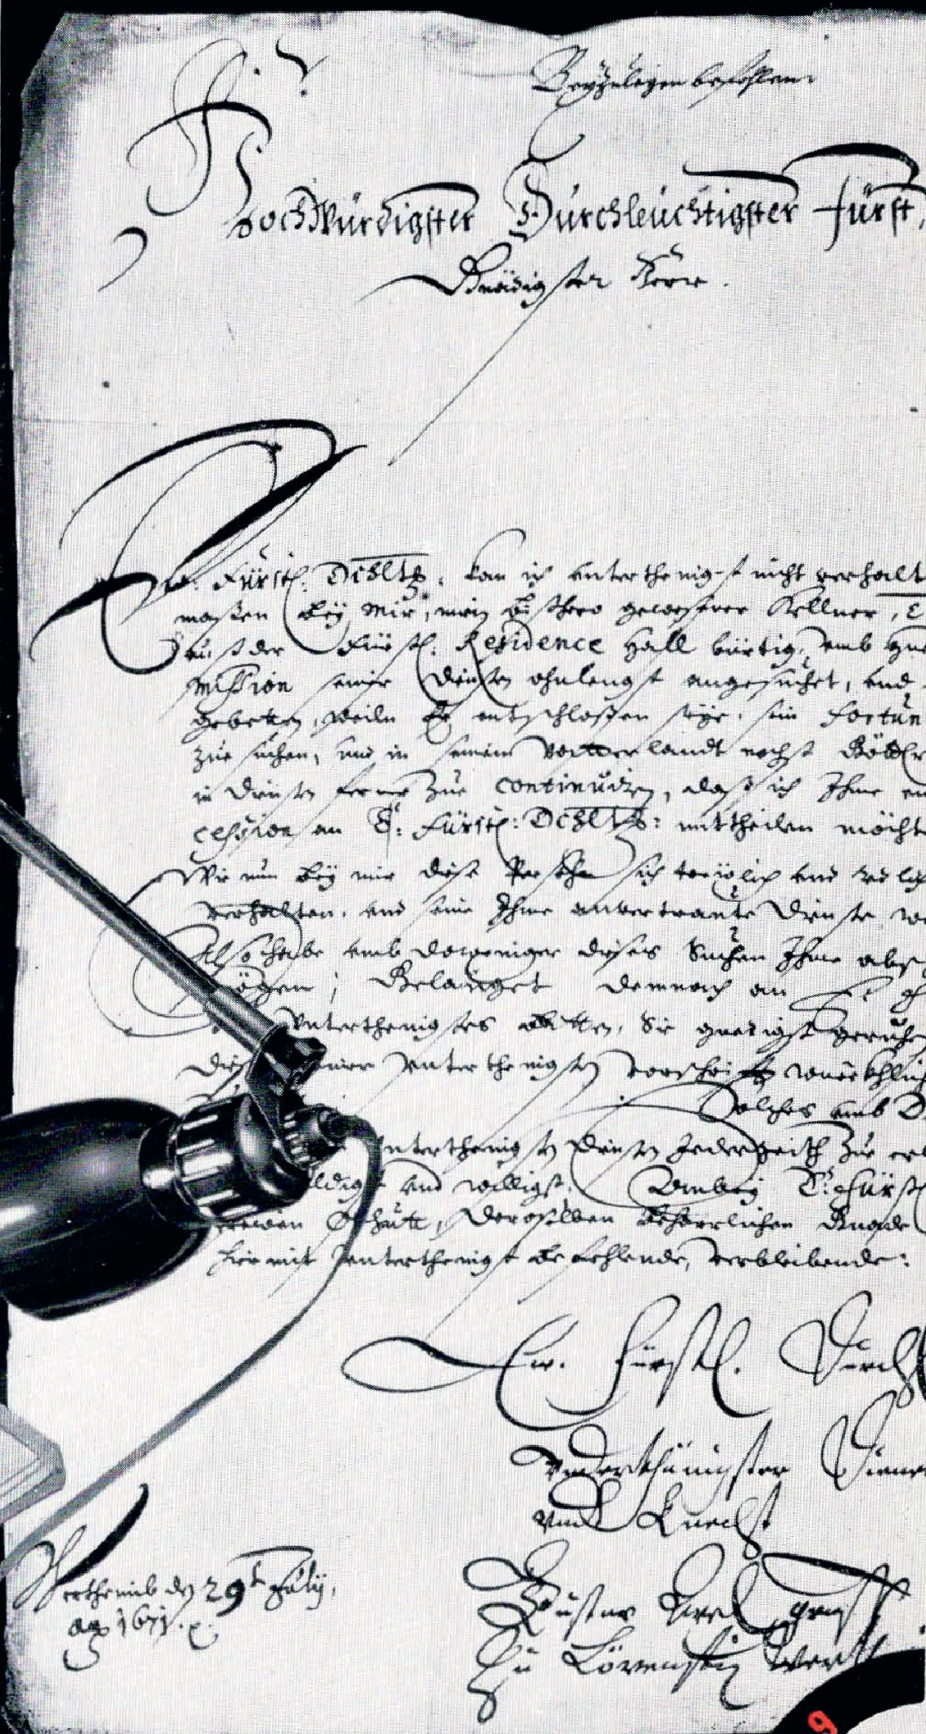 Beyzulegen befohlen.
Hochwürdigster Durchleüchtigster Fürst,
Gnädigster Herr.
Ew: Fürstl: Dchltg: kan ich unterthenigst nicht verhalt
maßen bey mir, mein bißhero geweßener Kellner,
auß der Fürstl: Residence Hall bürtig, umb
mission seiner diensten ohnlengst angesuchet, und
gebetten, weiln Er entschloßen seye, sein fortun
zue suchen, und in seinem Vatterlandt nechst Göttl
in diensten ferner zue continuiren, daß ich Ihme
cession an E: Fürstl: Dchltg: mittheilen möcht
Wie nun bey mir diese Persohn sich trewlich und redlich
verhalten, und seine Ihme anvertraute Dienste
Also habe umb doweniger dieses Suchen Ihme absch
mögen; Gelanget demnach an
unterthenigstes bitten, Sie gnedigst geruhen
dies meiner unterthenigsten vorschrift würckhlich
Solches umb D
unterthenigsten diensten Jederzeith zue
uldigst und willigst. Dabey E: Fürstl
trewen Schutz, deroselben beharrlichen Gnade
hiermit unterthenigst befehlende, verbleibende:
Ew. Fürstl. Durchl
underthänigster Diener
und Knecht
Gustav Axel graff
Zu Lövenstein Werth
Wertheimb den 29t July,
Ao 1671.
9